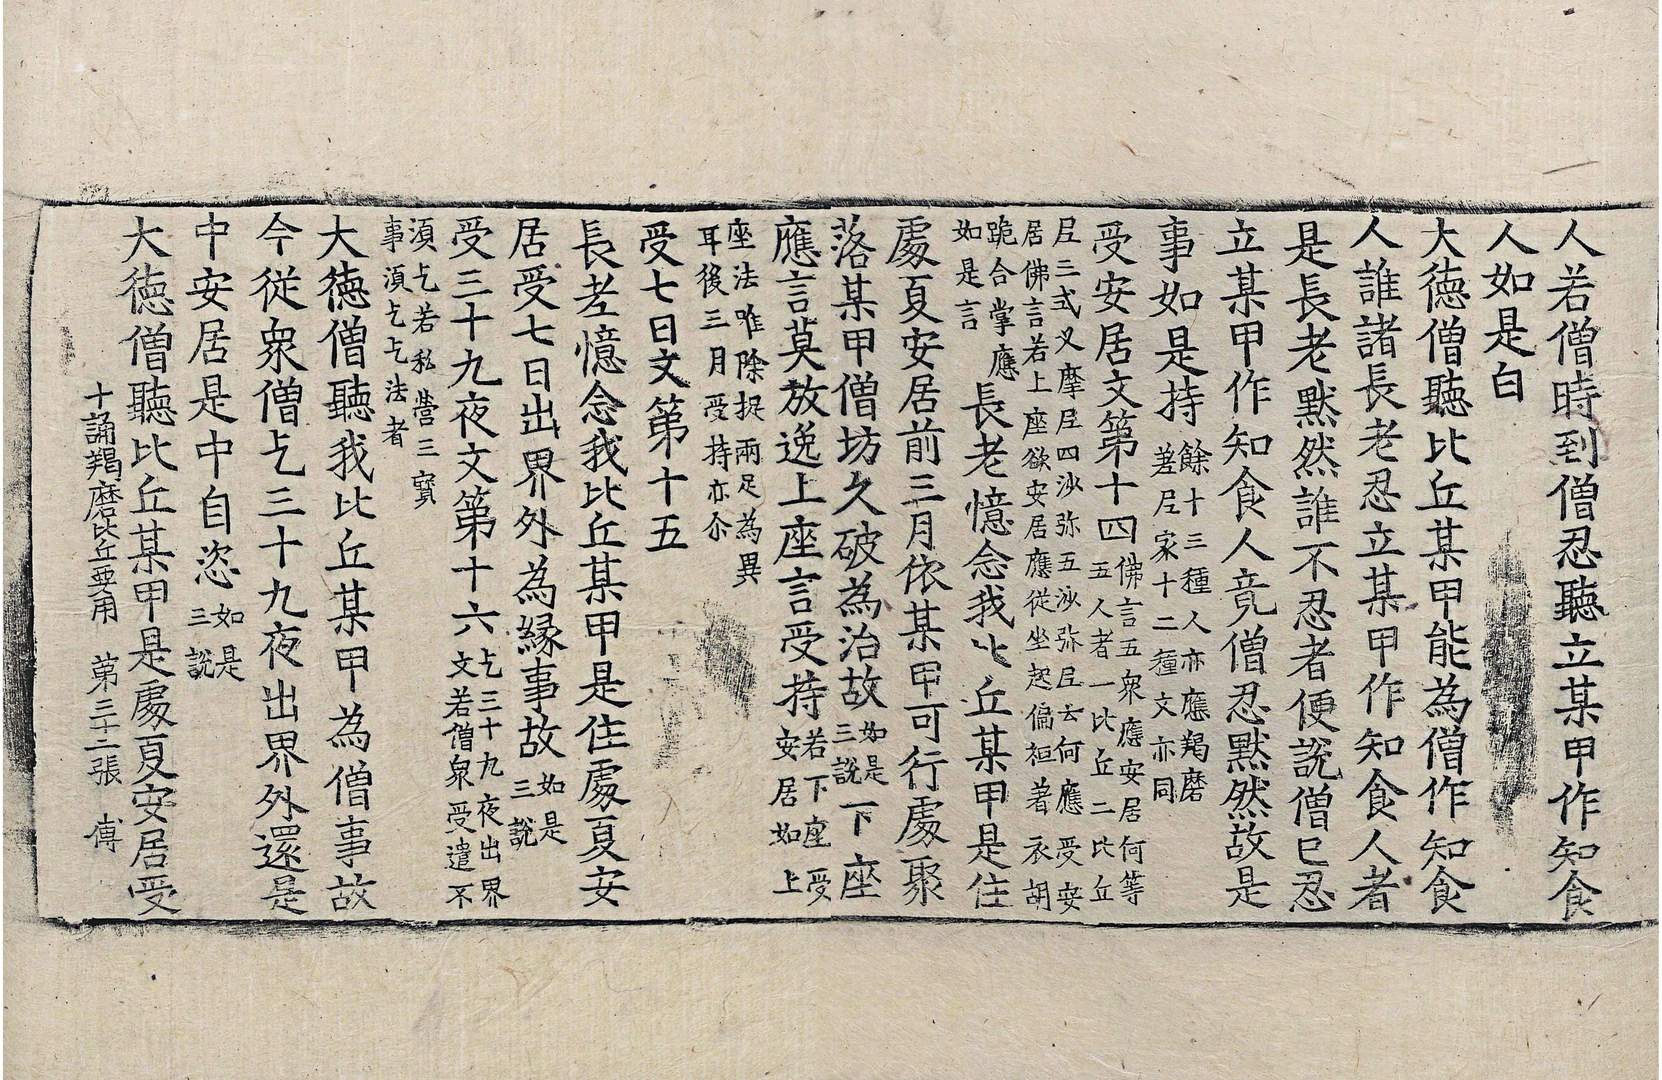 人若僧時到僧忍聽立某甲作知食
人如是白
大徳僧聽比丘某甲能為僧作知食
人誰諸長老忍立某甲作知食人者
是長老黙然誰不忍者便說僧已忍
立某甲作知食人竟僧忍黙然故是
事如是持餘十三種人亦應羯磨差尼家十二種文亦同
受安居文第十四佛言五衆應安居何等五人者一比丘二比丘
尼三式叉摩尼四沙弥五沙弥尼云何應受安
居佛言若上座欲安居應従坐起偏袒著衣胡
跪合掌應如是言長老憶念我比丘某甲是住
處夏安居前三月依某甲可行處聚
落某甲僧坊久破為治故如是三說下座
應言莫放逸上座言受持若下座受安居如上
座法唯除捉兩足為異
耳後三月受持亦尒
受七日文第十五
長老憶念我比丘某甲是住處夏安
居受七日出界外為縁事故如是三說
受三十九夜文第十六乞三十九夜出界文若僧衆受遣不
湏乞若私營三寳
事湏乞乞法者
大徳僧聽我比丘某甲為僧事故
今従衆僧乞三十九夜出界外還是
中安居是中自恣如是三說
大徳僧聽比丘某甲是處夏安居受
十誦羯磨比丘要用 第三十二張 傅